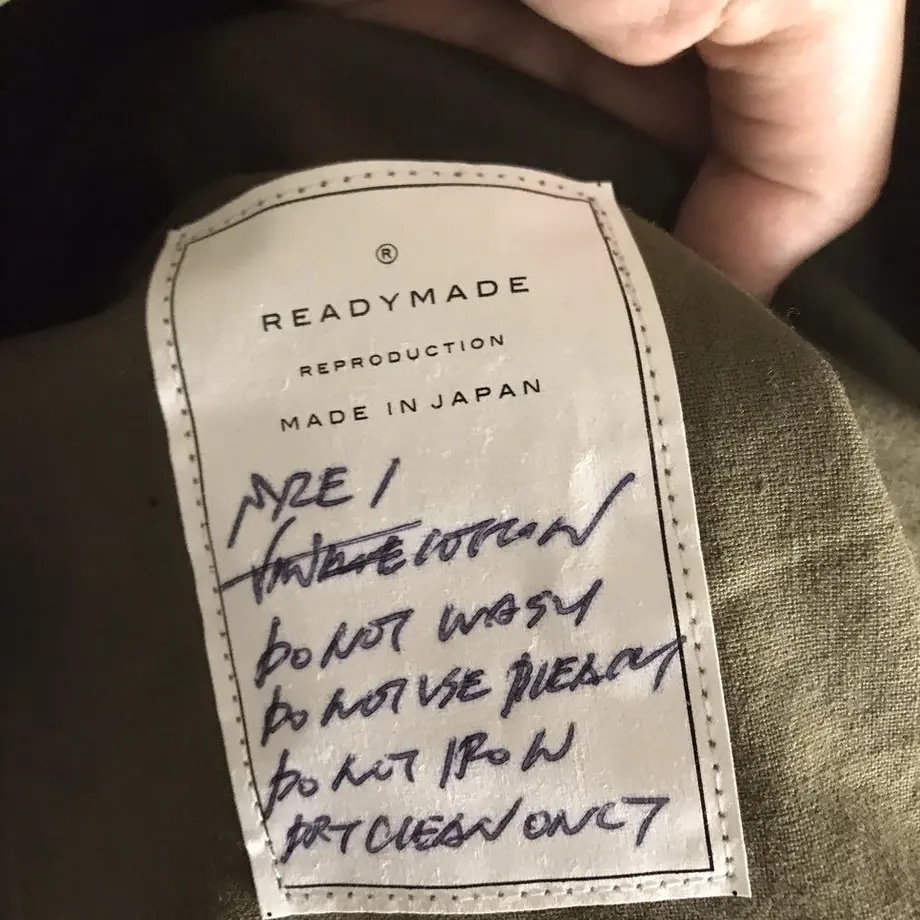 ®
READYMADE
REPRODUCTION
MADE IN JAPAN
SIZE 1
VINTAGE COTTON
DO NOT WASH
DO NOT USE BLEACH
DO NOT IRON
DRY CLEAN ONLY